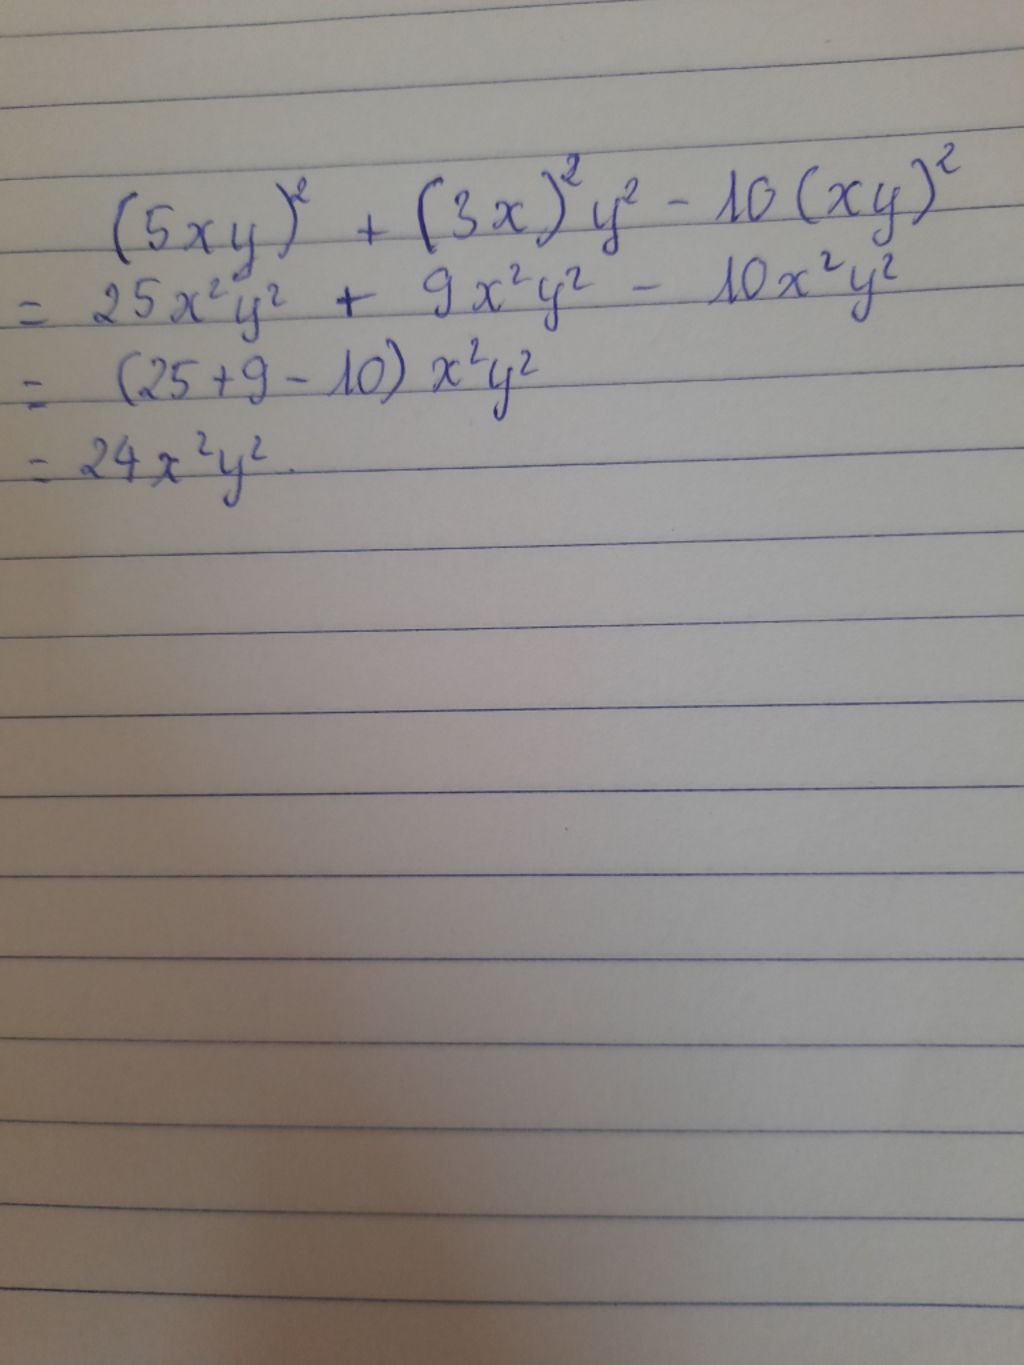 (5xy)² + (3x)²y² - 10(xy)²
= 25x²y² + 9x²y² - 10x²y²
= (25+9-10) x²y²
= 24x²y².